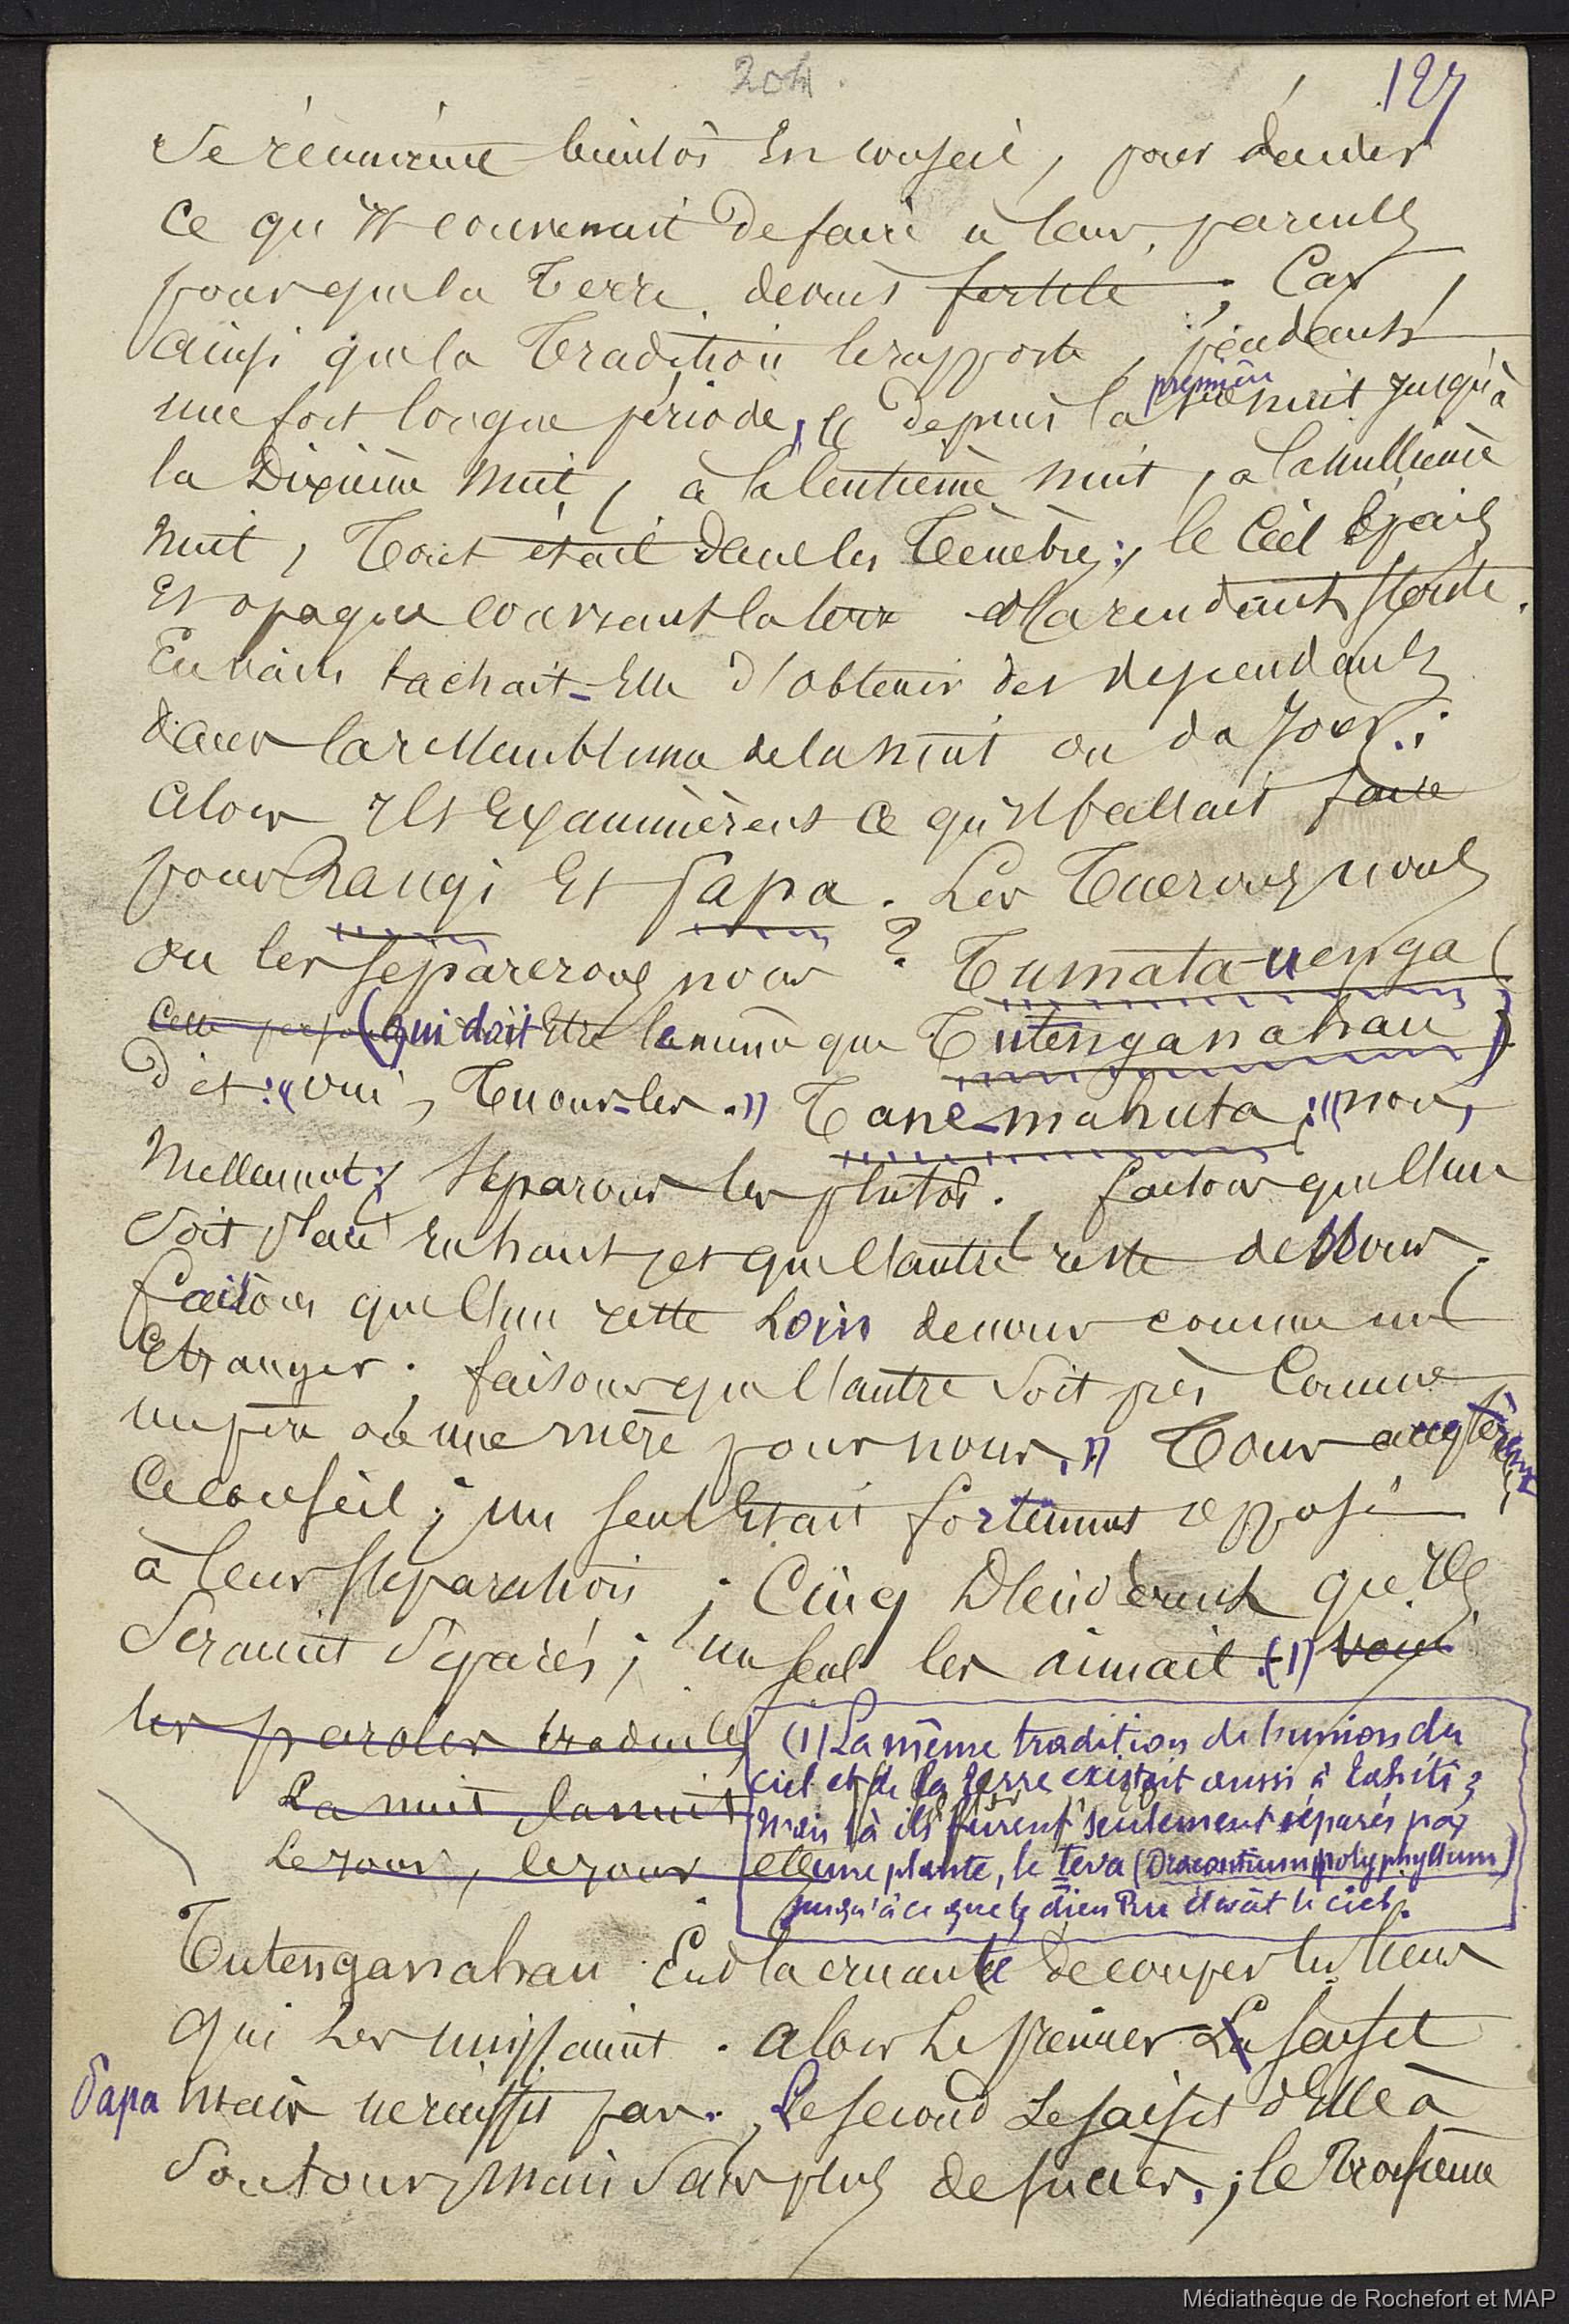 204.
127
Se réunirent bientôt en conseil, pour décider
ce qu'il convenait de faire à leurs parents
pour que la terre devint fertile ; Car,
ainsi que la tradition le rapporte, pendant
une fort longue période, depuis la première nuit jusqu'à
la dixième nuit, à la centième nuit, à la millième
nuit, tout était dans les ténèbres ; le Ciel épais
et opaque couvrant la terre et la rendant stérile.
En vain tachait-elle d'obtenir des descendants
dans la ressemblance de la nuit ou du jour ;
alors ils examinèrent ce qu'il fallait faire
pour Rangi et Papa. Les tuerons nous
ou les séparerons nous ? Tumata-uenga
(qui doit être le même que Tutenganahau)
dit : « oui, tuons-les. » Tane-mahuta ; « non,
nullement ; séparons les plutôt. faisons que l'un
soit placé en haut, et que l'autre reste dessous.
faisons que l'un reste loin de nous comme un
Etranger ; faisons que l'autre soit près comme
un père ou une mère pour nous. » Tous acceptèrent
ce conseil ; un seul était fortement opposé
à leur séparation ; Cinq décidèrent qu'ils
seraient séparés ; un seul les aimait. (1) Voici
les paroles traduites
La nuit, la nuit
Le jour, le jour
(1) La même tradition de l'union du
ciel et de la terre existait aussi à Tahiti ;
mais là ils furent seulement séparés par
une plante, le teva (Dracontium polyphyllum)
jusqu'à ce que le dieu Rue élevât le ciel.
Tutenganahau eut la cruauté de couper les liens
qui les unissaient. alors le premier saisit
Papa mais ne réussit pas. Le second se saisit d'Elle à
son tour, mais sans plus de succès ; le troisième
Médiathèque de Rochefort et MAP